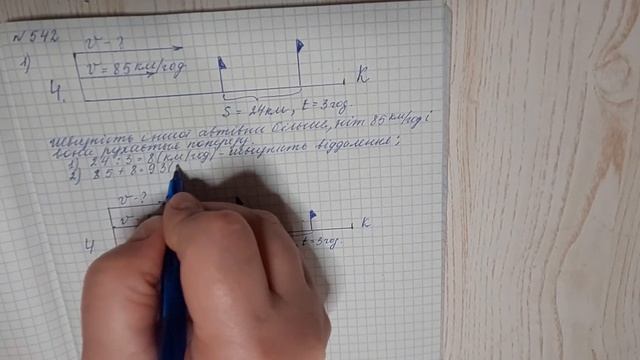 №542
1)
v - ?
v = 85 км/год
Ч.
К
S = 24км, t = 3 год.
Швидкість іншої автівки більше, ніж 85 км/год і
вони рухаються попереду.
1) 24 : 3 = 8 (км/год) - швидкість віддалення;
2) 85 + 8 = 93 (
v - ?
v =
Ч
К
t = 3 год.